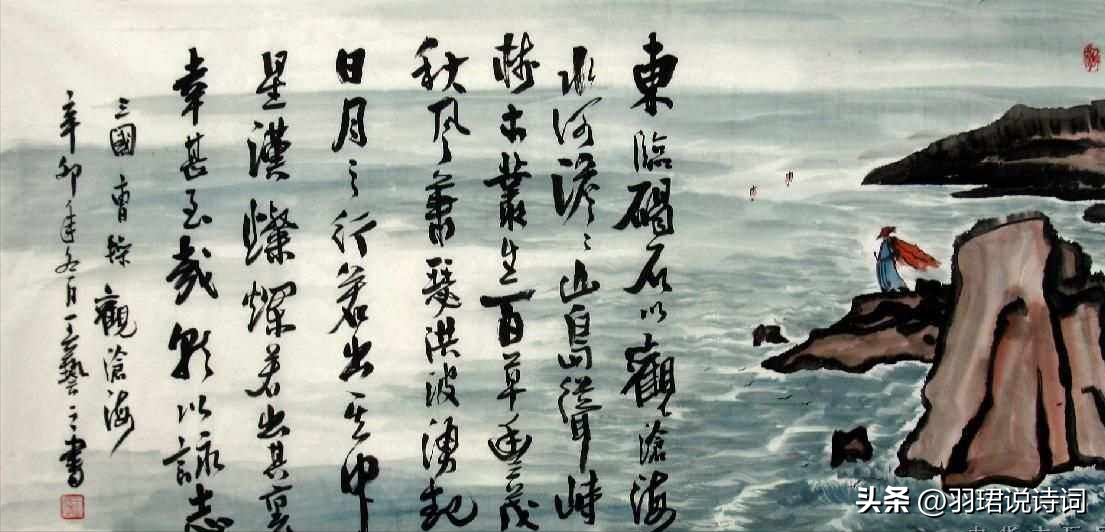 東臨碣石以觀滄海
水河澹〻山島聳峙
樹木叢生百草豐茂
秋風蕭瑟洪波湧起
日月之行若出其中
星漢燦爛若出其裏
幸甚至哉歌以詠志
三國 曹操 觀滄海
辛卯年冬月 藝之書
头条 @羽珺说诗词